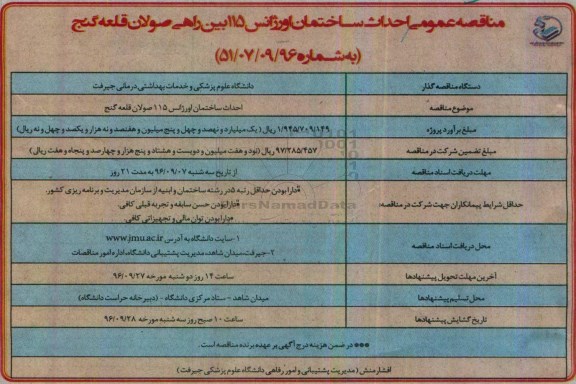 مناقصه عمومی احداث ساختمان اورژانس ۱۱۵ بین راهی صولان قلعه گنج
(به شماره ۵۱/۰۷/۰۹/۹۶)
دستگاه مناقصه گذار
دانشگاه علوم پزشکی و خدمات بهداشتی درمانی جیرفت
موضوع مناقصه
احداث ساختمان اورژانس ۱۱۵ صولان قلعه گنج
مبلغ برآورد پروژه
۱/۹۴۵/۷۰۹/۱۴۹ ریال (یک میلیارد و نهصد و چهل و پنج میلیون و هفتصد و نه هزار و یکصد و چهل و نه ریال)
مبلغ تضمین شرکت در مناقصه
۹۷/۲۸۵/۴۵۷ ریال (نود و هفت میلیون و دویست و هشتاد و پنج هزار و چهارصد و پنجاه و هفت ریال)
مهلت دریافت اسناد مناقصه
از تاریخ سه شنبه ۹۶/۰۹/۰۷ به مدت ۲۱ روز
حداقل شرایط پیمانکاران جهت شرکت در مناقصه:
*دارا بودن حداقل رتبه ۵در رشته ساختمان و ابنیه از سازمان مدیریت و برنامه ریزی کشور.
*دارابودن حسن سابقه و تجربه قبلی کافی.
*دارابودن توان مالی و تجهیزاتی کافی.
محل دریافت اسناد مناقصه
۱-سایت دانشگاه به آدرس www.jmu.ac.ir
۲-جیرفت،میدان شاهد، مدیریت پشتیبانی دانشگاه،اداره امور مناقصات
آخرین مهلت تحویل پیشنهادها
ساعت ۱۴ روز دوشنبه مورخه ۹۶/۰۹/۲۷
محل تسلیم پیشنهادها
میدان شاهد - ستاد مرکزی دانشگاه - (دبیرخانه حراست دانشگاه)
تاریخ گشایش پیشنهادها
ساعت ۱۰ صبح روز سه شنبه مورخه ۹۶/۰۹/۲۸
*** در ضمن هزینه درج آگهی بر عهده برنده مناقصه است.
افشارمنش (مدیریت پشتیبانی و امور رفاهی دانشگاه علوم پزشکی جیرفت)